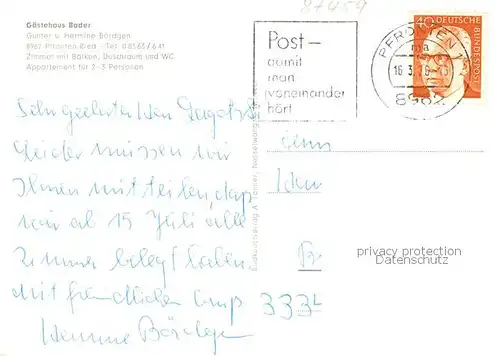 87459
Gästehaus Bader
Gunter u. Hermine Bördgen
8967 Pfronten-Ried · Tel. 08363/641
Zimmer mit Balkon, Duschraum und WC
Appartement für 2-3 Personen
Post-
damit
man
voneinander
hört
PFRONTEN 1
ma
16.3.76-15
8962
40 DEUTSCHE
BUNDESPOST
Sehr geehrter Herr
Leider müssen wir
Ihnen mitteilen, daß
wir ab 15 Juli alle
Zimmer belegt haben.
mit freundlichem Gruß
Hermine Bördgen
Herrn
333
Nesselwang
privacy protection
Datenschutz